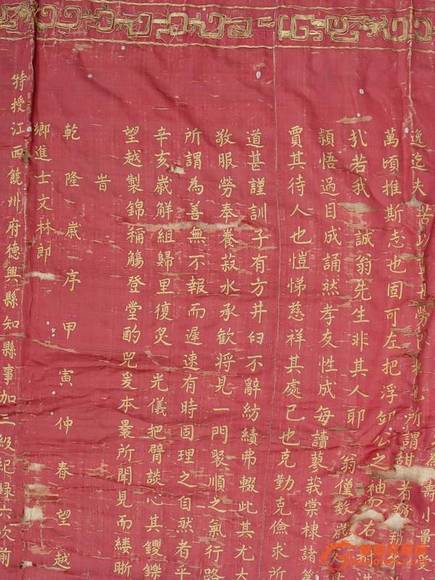 壽小量受
逸迄夫若學也所謂甜者
萬頃推斯志也固可左把浮邱公之袖右
於若我 誠翁先生非其人耶 翁僅數
穎悟過目成誦然孝友性成每讀蓼莪棠棣諸篇
賈其待人也愷悌慈祥其處己也克勤克儉求近
道甚謹訓子有方井臼不辭紡績弗輟此其尤大
敬服勞奉養菽水承歡將見一門聚順之氣行路
所謂為善無不報而遲速有時固理之自然者乎
辛亥歲解組歸里復炙 光儀把臂談心其钁鑠
望越製錦稱觴登堂酌兕爰本曩所聞見而縷晰
旹
乾隆歲序甲寅仲春望越
鄉進士文林郎
特授江西饒州府德興縣知縣事加三級紀錄六次前